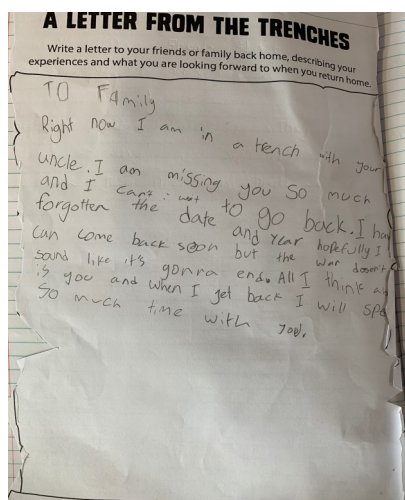 A LETTER FROM THE TRENCHES
Write a letter to your friends or family back home, describing your
experiences and what you are looking forward to when you return home.
TO FAmily
Right now I am in a trench with your
uncle. I am missing you so much
and I can't wat to go back. I hav
forgotten the date and year hopefully I
can come back soon but the war doesn't
sound like it's gonna end. All I think a
is you and when I get back I will spe
so much time with you.